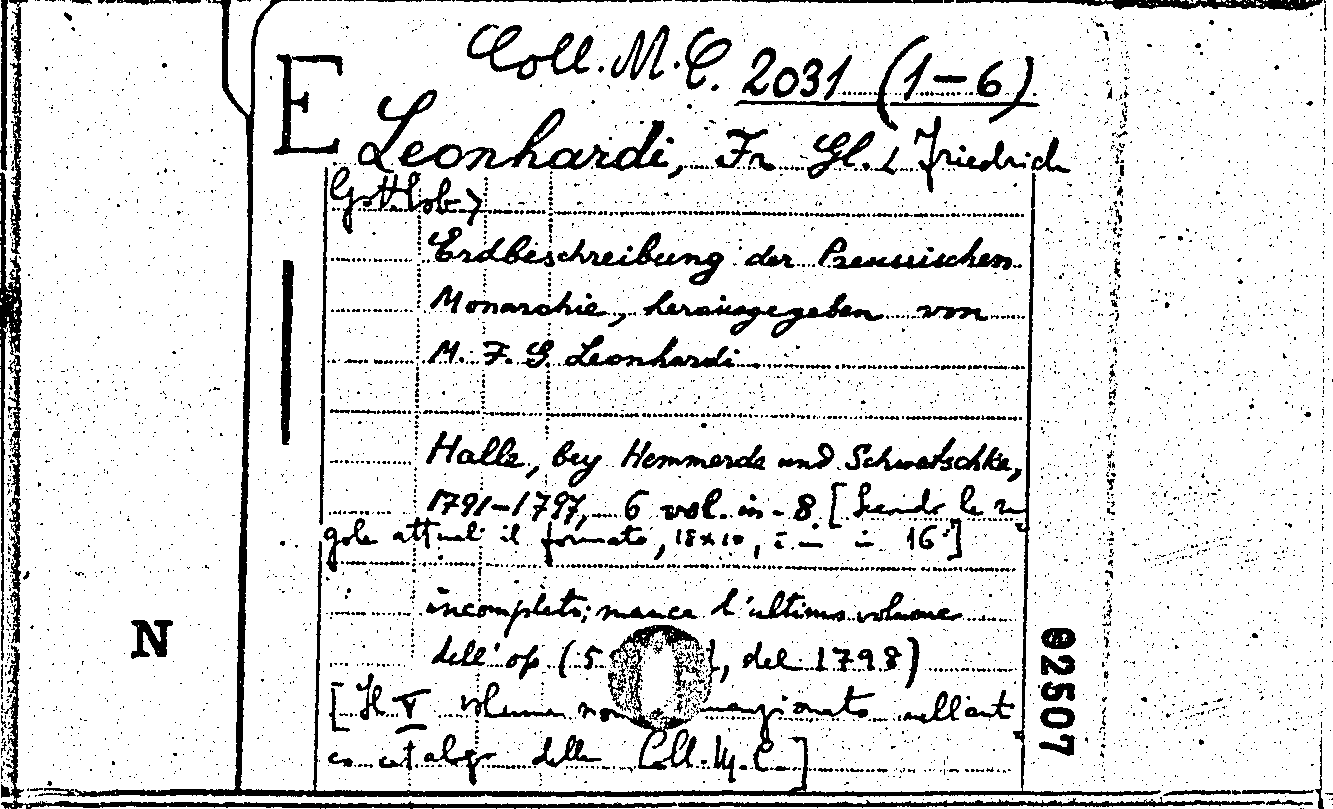 Coll. M. C. 2031 (1-6)
E
Leonhardi, Fr Gl. < Friedrich
Gottlob>
Erdbeschreibung der Preussischen
Monarchie, herausgegeben von
M. F. G. Leonhardi.
Halle, bey Hemmerde und Schwetschke,
1791-1797, 6 vol. in-8. [Secondo le re
gole attuali il formato, 18x10, è in 16°]
incompleto; manca l'ultimo volume
dell'op (5 del 1798)
[Il V volume menzionato nell'ant
co catalogo della Coll. M. C.]
N
02507